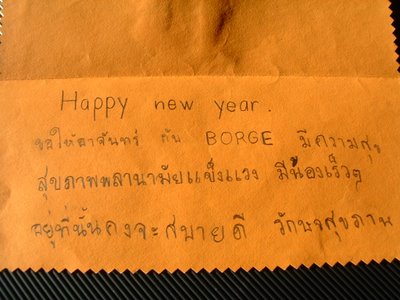 Happy new year.
ขอให้อาจันทร์ กับ BORGE มีความสุข
สุขภาพพลานามัยแข็งแรง มีน้องเร็วๆ
อยู่ที่นั่นคงจะสบายดี รักษาสุขภาพ